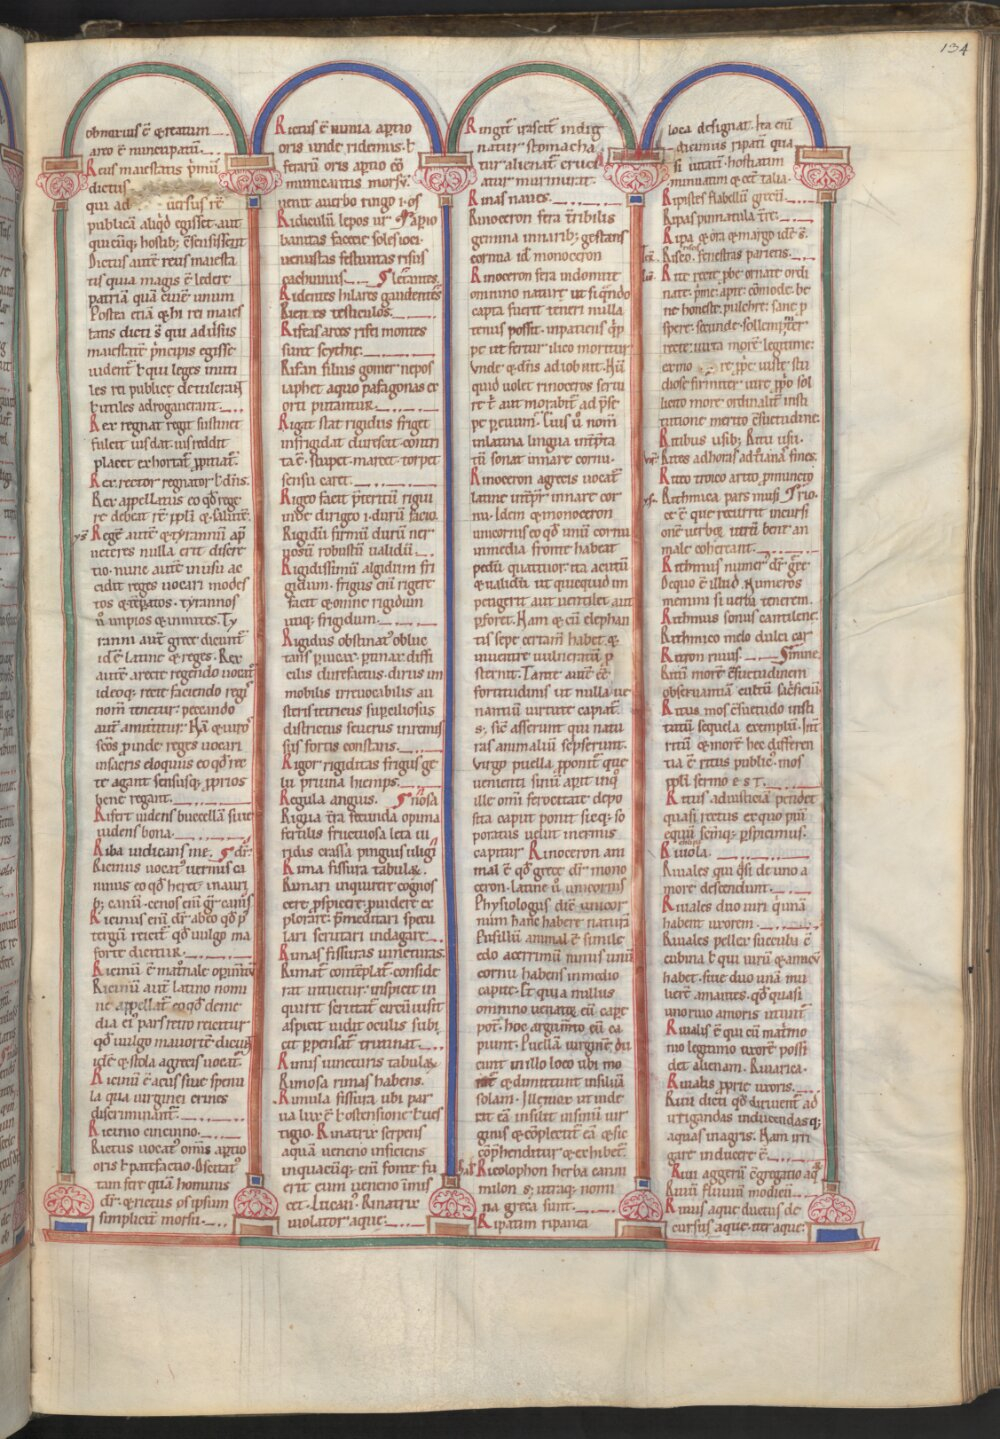 134
obnoxius ē & reatum
arto ē nuncupatum.
Reus maiestatis primū
dictus
qui ad uersus rē
publicā aliqd egisset aut
quicūq; hostib; c̄sensisserit
Dictus autē reus maiesta
tis quia magis ē ledere
patriā quā ciuē unum
Postea etiā & hi rei maies
tatis dicti s̄ qui aduersus
maiestatē principis egisse
uident̄
les rei publicę detulerant
utiles adrogauerant
Rex regnat regit sustinet
fulcit
placet
Rex rector regnator
Rex appellatus eo qd rege
re debeat rē ppli & saluare
Regē autē & tyrannū ap
ueteres nulla erit discre
tio. nunc autē inusu ac
cidit reges uocari modes
tos & tēpatos. tyrannos
ū impios & inmites. Ty
ranni aut̄ grece dicunt̄
idē latine & reges. Rex
autē arecte regendo uocat'
ideoq; recte faciendo regis
nom̄ tenetur. peccando
aut̄ amittitur. Hā & uiros
sc̄os pinde reges uocari
insacris eloquiis eo qd re
te agant sensusq; pprios
bene regant.
Rifert uidens buccellā siue
uidens bona.
Riba iudicans me. dr̄.
Ricinus uocat' uermis ca
ninus eo qd heret inauri
b; canū. cenos enī gr̄ canis
Ricinus enī dr̄ abeo qd p
tergū reicit̄ qd uulgo ma
forte dicitur.
Ricinū ē matronale opimtū
Ricinū aut̄ latino nomi
ne appellat̄ eo qd demc
dia ei' pars retro reicitur
qd uulgo mauortē dicunt
idē & stola agrecis uocat̄.
Ricinū ē acus siue spenu
la qua uirginei crines
discriminant̄.
Ricino cincinno.
Rictus uocat' om̄is aptio
oris l patefactio. Oscitat'
tam fere quā hominis
dr̄. & rictus os ipsum
simplicem morsu.
Rictus ē nimia aptio
oris unde ridemus. l
ferarū oris aptio eo
minitantis morsū.
uenit auerbo ringo i. os
Ridiculū lepos ur
banitas facetie soles ioci.
uenustas festiuitas risus
cachinnus. letantes.
Ridentes hilares gaudentes
Rien res testiculos.
Rifeas arces rifei montes
sunt scythie.
Rifan filius gomer nepos
iaphet aquo pafagonas ex
orti putantur.
Rigat stat rigidus friget
infrigidat durescit contri
ta ē. stupet. marcet. torpet
sensu caret.
Rigeo facit pteritū rigui
inde dirigeo i. durū facio.
Rigidū firmū durū ner
uosū robustū ualidū.
Rigidissimū algidum fri
gidum. frigus enī rigere
facit & omne rigidum
utiq; frigidum.
Rigidus obstinat' oblue
tans puicax. ptinax diffi
cilis durefactus. dirus im
mobilis irreuocabilis au
steris tetricus supciliosus
districtus seuerus inremis
sus fortis constans.
Rigor rigiditas frigus ge
lu pruina hiemps.
Regula anguis. nosa
Rigua tr̄a fecunda opima
fertilis fructuosa leta ui
ridis crassa pinguis uligi
Rima fissura tabulæ.
Rimari inquirere cognos
cere pspicere. puidere ex
plorare. p̄meditari specu
lari scrutari indagare.
Rimas fissuras uincturas.
Rimat̄ contēplat̄. conside
rat intuetur. inspicit in
quirit scrutat̄ circūuisit
aspicit uidit oculis subi
cit ppensat̄ trutinat.
Rimis iuncturis tabulæ
Rimosa rimas habens.
Rimula fissura ubi par
ua lux ē l ostensione l ues
tigio. Rinatrix serpens
aquā ueneno inficiens
inquacūq; enī fonte fu
erit eum ueneno īmis
cet. Lucan'. Rinatrix
uiolator aque.
Ringit̄ irascit̄ indig
natur stomacha
tur alienat̄ crucia
atur murmurat.
Rinas naues.
Rinoceron fera tr̄ribilis
gemma innarib; gestans
cornua id monoceron
Rinoceron fera indomite
omnino nature ut si qn̄do
capta fuerit teneri nulla
tenus possit. inpatiens q̄pp
pe ut fertur ilico moritur
Vnde & dn̄s ad iob ait. Nū
quid uolet rinoceros serui
re t̄ aut morabit̄ ad p̄se
pe tuum. Cuius ū nom̄
inlatina lingua int̄pta
tū sonat innare cornu.
Rinoceron agrecis uocat̄
latine int̄pr̄ innare cor
nu. Idem & monoceron
unicornis eo qd unū cornu
inmedia fronte habeat
pedū quattuor. ita acutū
& ualidū ut quicquid im
petigerit aut uentilet aut
pforet. Nam & cū elephan
tis sepe certam̄ habet &
inuentre uulneratū p
sternit. Tante aut̄ ē
fortitudinis ut nulla ue
nantiū uirtute capiat̄.
s; sic asserunt qui natu
ras animaliū scpserunt.
Virgo puella pponit̄ que
uenienti sinū apit inq
ille om̄i ferocitate depo
sita caput ponit sicq; so
poratus uelut inermis
capitur Rinoceron ani
mal ē qd grece dr̄ mono
ceron. latine ū unicornis
Physiologus dic̄ unicor
num hanc habere naturā
Pusillū animal ē simile
edo acerrimū nimis unū
cornu habens inmedio
capite. Et quia nullus
omnino uenator eū cape
pot̄. hoc argumto eū ca
piunt. Puellā uirginē du
cunt inillo loco ubi mo
rat̄ & dimittunt insiluā
solam. Ille mox ut uide
rit eā insilit insinū uir
ginis & c̄plectit̄ eā & sic
cōphenditur & exhibet̄
Ricolophon herba camu
milon s; utraq; nomi
na greca sunt.
Ripatim ripanea
loca designat. Ita enī
dicimus ripatī qua
si uicatī. hostiatim
minuatim & cet talia.
Ripistes flabellū greci.
Ripas pinnacula tr̄re.
Ripa & ora & margo idē s̄.
Riseo. fenestras parietis.
Rite recte pbe ornate ordi
nate. p̄mic apte. cōmode. be
ne honeste. pulchre. sane p
spere. secunde. sollempniter
recte. iuxta more legitime.
ex mo re ppe. iuste stu
diose firmiter. iure pprio sol
licito more ordinalit̄ insti
tutione merito c̄suetudine.
Ritibus usib; Ritu usu.
Rites adhoras adtr̄ina fines.
Ritto troico arcto pmuneto
Rithmica pars musi Trio
ce ē que recurrit incursi
onē uerboȝ utrū bene an
male cohereant.
Rithmus numer' dr̄ grece
Dequo ē illud. Numeros
memini si uerba tenerem.
Rithmus sonus cantilene.
Rithmico melo dulci car
Riton riuus. mine.
Ritū morē c̄suetudinem
obseruantiā cultū sacrificiū
Ritus mos c̄suetudo insti
tutū sequela exemplū. Int
ritū & morē hec differen
tia ē ritus public'. mos
ppli sermo est.
Ritus adiusticiā pendet
quasi rectus ex quo piū
equū scm̄q; pspicimus.
Riuola.
Riuales qui q̄si de uno a
more descendunt.
Riuales duo uiri q' unā
habent uxorem.
Riuales pellex succuba c̄
cubina l qui uirū & amicū
habet. siue duo unā mu
lierē amantes. qd quasi
uno riuo amoris utunt̄
Riualis ē qui cū matrimo
nio legitimo uxorē possi
det alienam. Riuarica.
Riualis pprie uxoris.
Riui dicti qd diriuent̄ ad
irrigandas inducendasq;
aquas inagris. Nam irri
gare inducere ē.
Riui aggerū c̄gregatio aq
Riuū fluuiū modicū.
Riuus aque ductus de
cursus aque. iter aque.